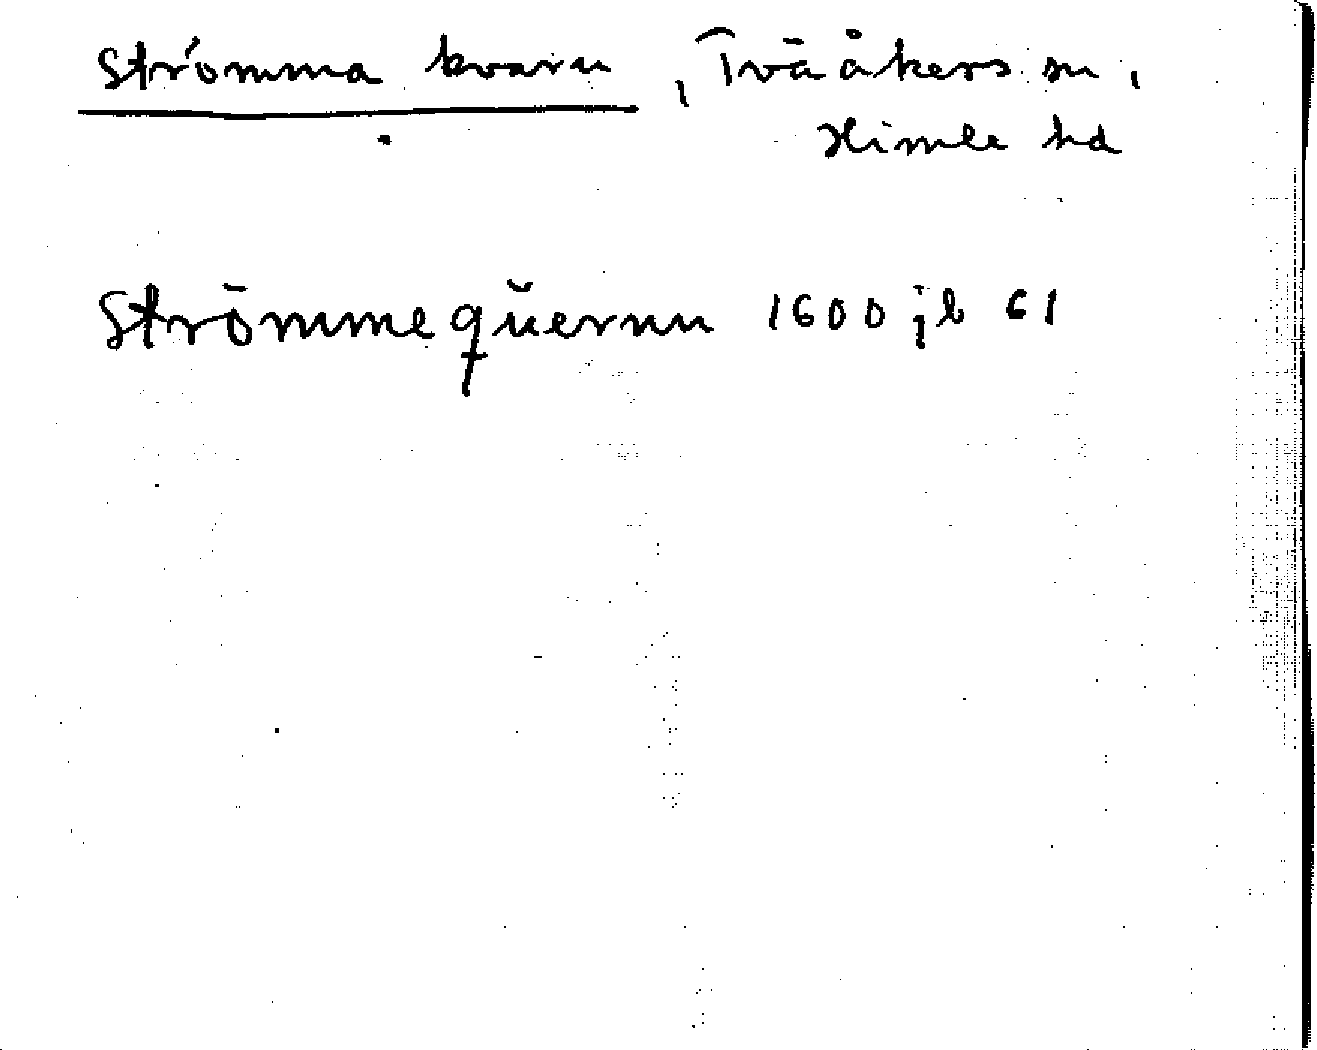 Strömma kvarn, Tvååkers sn,
Himle hd
Strömmequernn 1600 jb 61